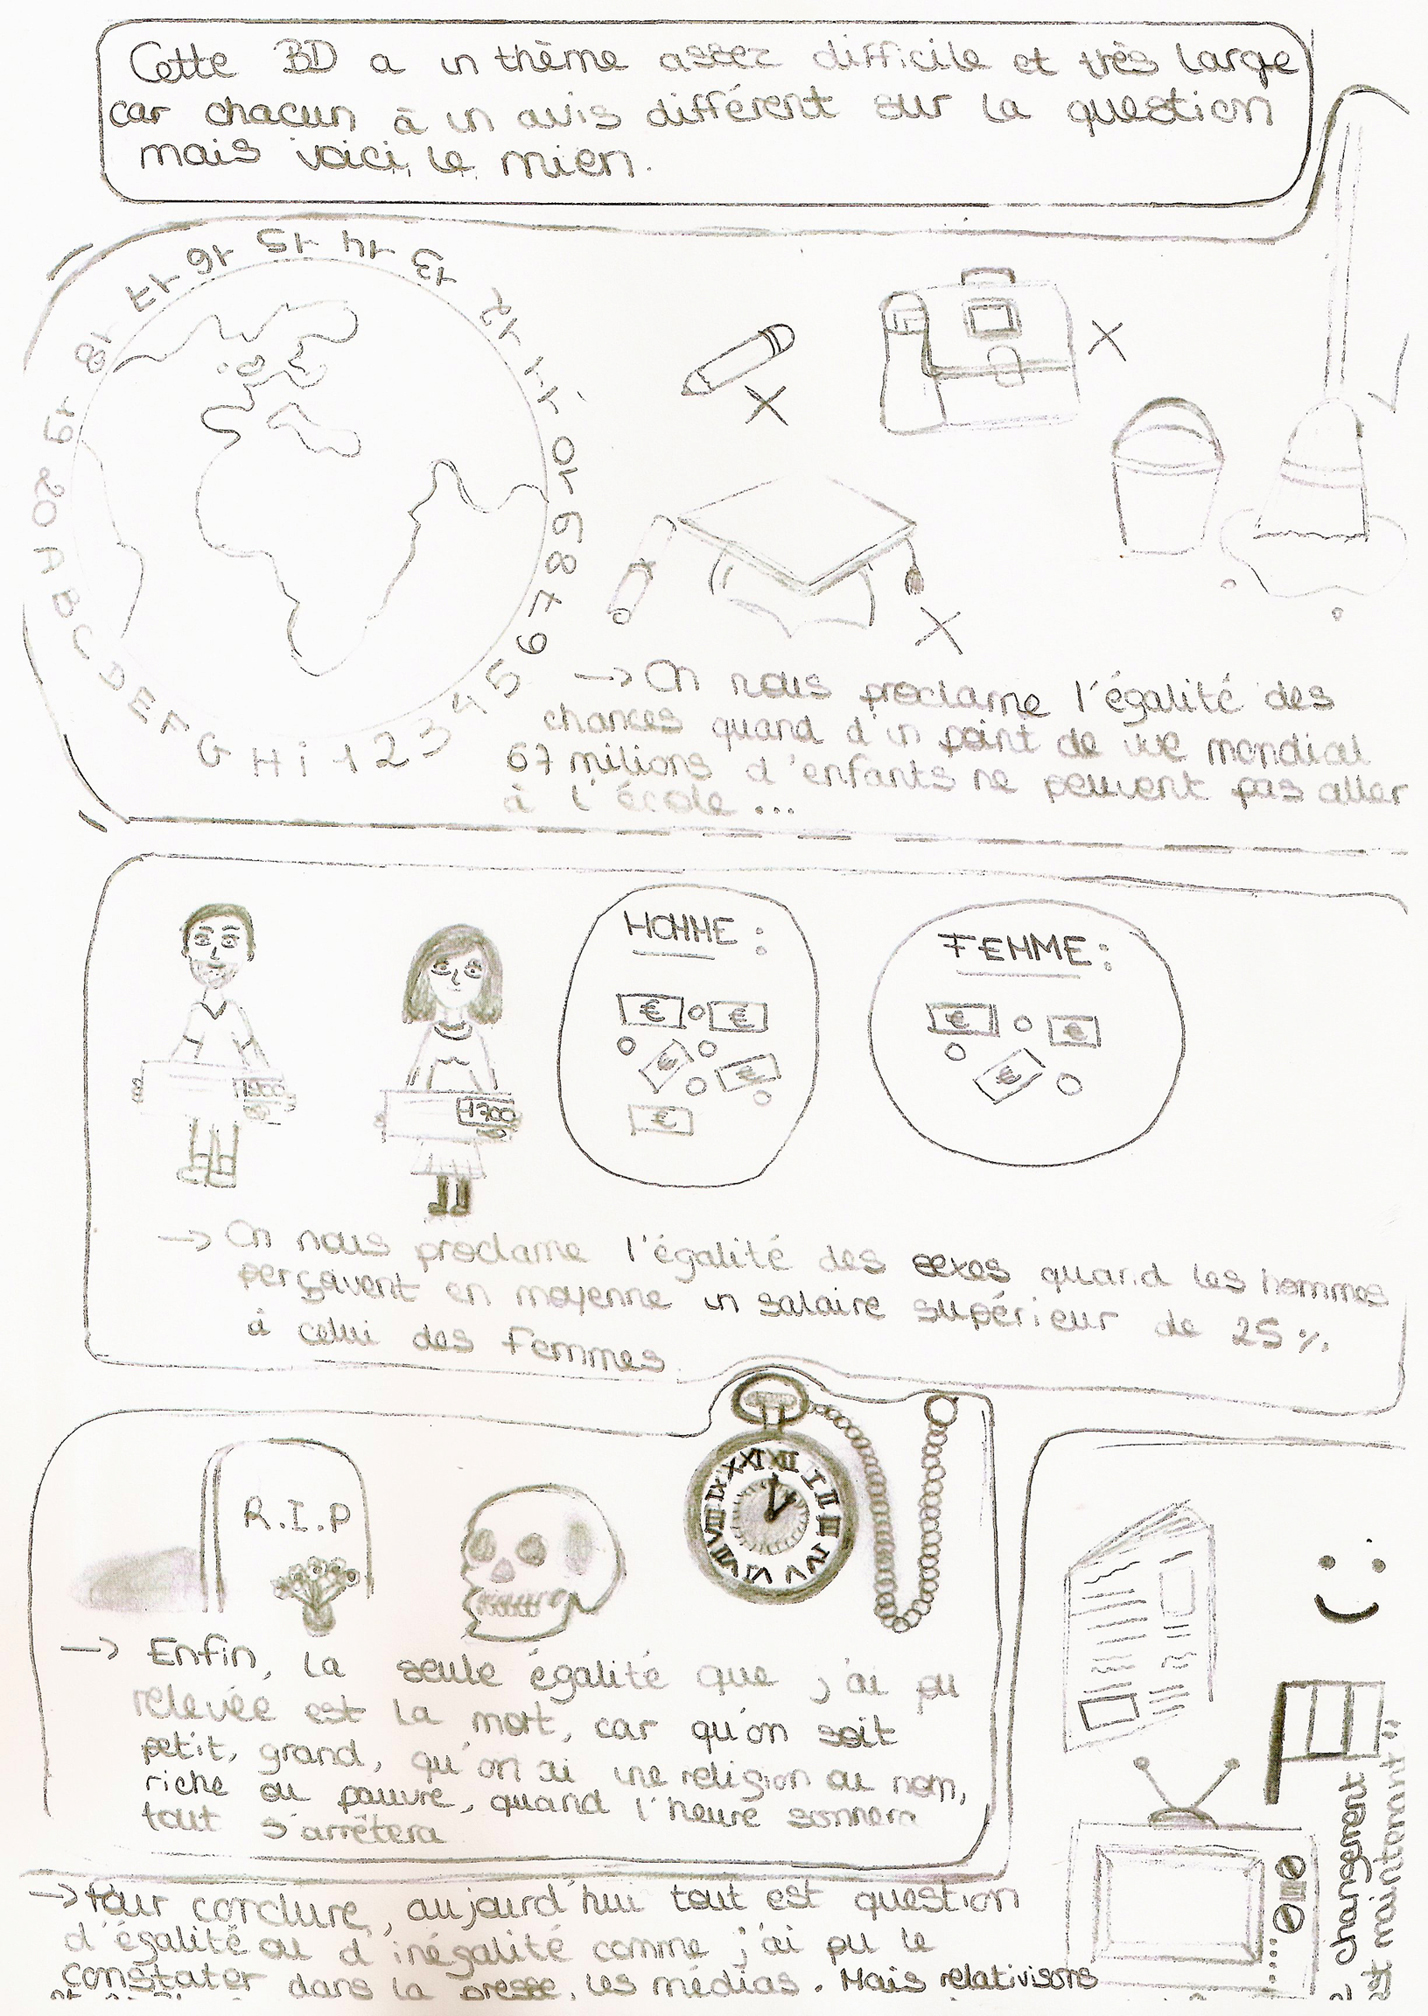 Cette BD a un thème assez difficile et très large
car chacun à un avis différent sur la question
mais voici le mien.
A B C D E F G H i 1 2 3 4 5 6 7 8 9 10 11 12 13 14 15 16 17 18 19 20
→ On nous proclame l'égalité des
chances quand d'un point de vue mondial
67 milions d'enfants ne peuvent pas aller
à l'école ...
HOMME :
FEMME :
€ €
€ €
€ €
€
€
1700
→ On nous proclame l'égalité des sexes quand les hommes
perçoivent en moyenne un salaire supérieur de 25 %
à celui des femmes
R.I.P
XII I II III IV V VI VII VIII IX X XI
→ Enfin, la seule égalité que j'ai pu
relevée est la mort, car qu'on soit
petit, grand, qu'on ai une religion ou non,
riche ou pauvre, quand l'heure sonnera
tout s'arrêtera
changement
est maintenant"
→ Pour conclure, aujourd'hui tout est question
d'égalité ou d'inégalité comme j'ai pu le
constater dans la presse, les médias. Mais relativisons